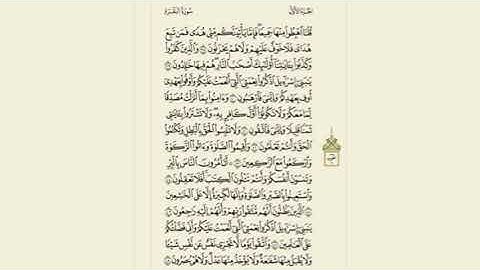 الجزء الأول
سورة البقرة
قُلْنَا ٱهْبِطُوا۟ مِنْهَا جَمِيعًا ۖ فَإِمَّا يَأْتِيَنَّكُم مِّنِّى هُدًى فَمَن تَبِعَ
هُدَاىَ فَلَا خَوْفٌ عَلَيْهِمْ وَلَا هُمْ يَحْزَنُونَ ٣٨ وَٱلَّذِينَ كَفَرُوا۟
وَكَذَّبُوا۟ بِـَٔايَـٰتِنَآ أُو۟لَـٰٓئِكَ أَصْحَـٰبُ ٱلنَّارِ ۖ هُمْ فِيهَا خَـٰلِدُونَ ٣٩
يَـٰبَنِىٓ إِسْرَٰٓءِيلَ ٱذْكُرُوا۟ نِعْمَتِىَ ٱلَّتِىٓ أَنْعَمْتُ عَلَيْكُمْ وَأَوْفُوا۟ بِعَهْدِىٓ
أُوفِ بِعَهْدِكُمْ وَإِيَّـٰىَ فَٱرْهَبُونِ ٤٠ وَءَامِنُوا۟ بِمَآ أَنزَلْتُ مُصَدِّقًا
لِّمَا مَعَكُمْ وَلَا تَكُونُوٓا۟ أَوَّلَ كَافِرٍۭ بِهِۦ ۖ وَلَا تَشْتَرُوا۟ بِـَٔايَـٰتِى
ثَمَنًا قَلِيلًا وَإِيَّـٰىَ فَٱتَّقُونِ ٤١ وَلَا تَلْبِسُوا۟ ٱلْحَقَّ بِٱلْبَـٰطِلِ وَتَكْتُمُوا۟
ٱلْحَقَّ وَأَنتُمْ تَعْلَمُونَ ٤٢ وَأَقِيمُوا۟ ٱلصَّلَوٰةَ وَءَاتُوا۟ ٱلزَّكَوٰةَ
وَٱرْكَعُوا۟ مَعَ ٱلرَّٰكِعِينَ ٤٣ أَتَأْمُرُونَ ٱلنَّاسَ بِٱلْبِرِّ
وَتَنسَوْنَ أَنفُسَكُمْ وَأَنتُمْ تَتْلُونَ ٱلْكِتَـٰبَ ۚ أَفَلَا تَعْقِلُونَ ٤٤
وَٱسْتَعِينُوا۟ بِٱلصَّبْرِ وَٱلصَّلَوٰةِ ۚ وَإِنَّهَا لَكَبِيرَةٌ إِلَّا عَلَى ٱلْخَـٰشِعِينَ ٤٥
ٱلَّذِينَ يَظُنُّونَ أَنَّهُم مُّلَـٰقُوا۟ رَبِّهِمْ وَأَنَّهُمْ إِلَيْهِ رَٰجِعُونَ ٤٦
يَـٰبَنِىٓ إِسْرَٰٓءِيلَ ٱذْكُرُوا۟ نِعْمَتِىَ ٱلَّتِىٓ أَنْعَمْتُ عَلَيْكُمْ وَأَنِّى فَضَّلْتُكُمْ
عَلَى ٱلْعَـٰلَمِينَ ٤٧ وَٱتَّقُوا۟ يَوْمًا لَّا تَجْزِى نَفْسٌ عَن نَّفْسٍ شَيْـًٔا
وَلَا يُقْبَلُ مِنْهَا شَفَـٰعَةٌ وَلَا يُؤْخَذُ مِنْهَا عَدْلٌ وَلَا هُمْ يُنصَرُونَ ٤٨